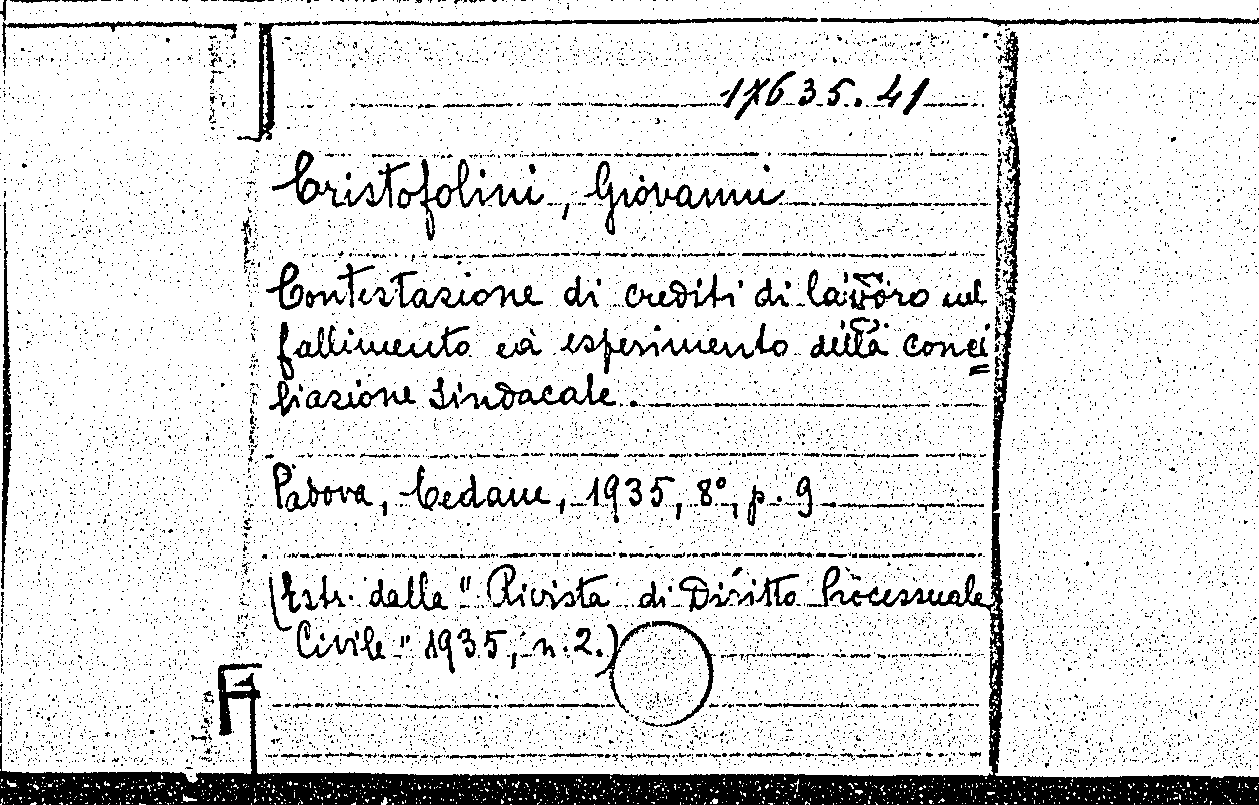 17635.41
Cristofolini, Giovanni
Contestazione di crediti di lavoro nel
fallimento ed esperimento della conci
liazione sindacale.
Padova, Cedam, 1935, 8°, p. 9
(Estr. dalla "Rivista di Diritto Processuale
Civile" 1935, n. 2.)